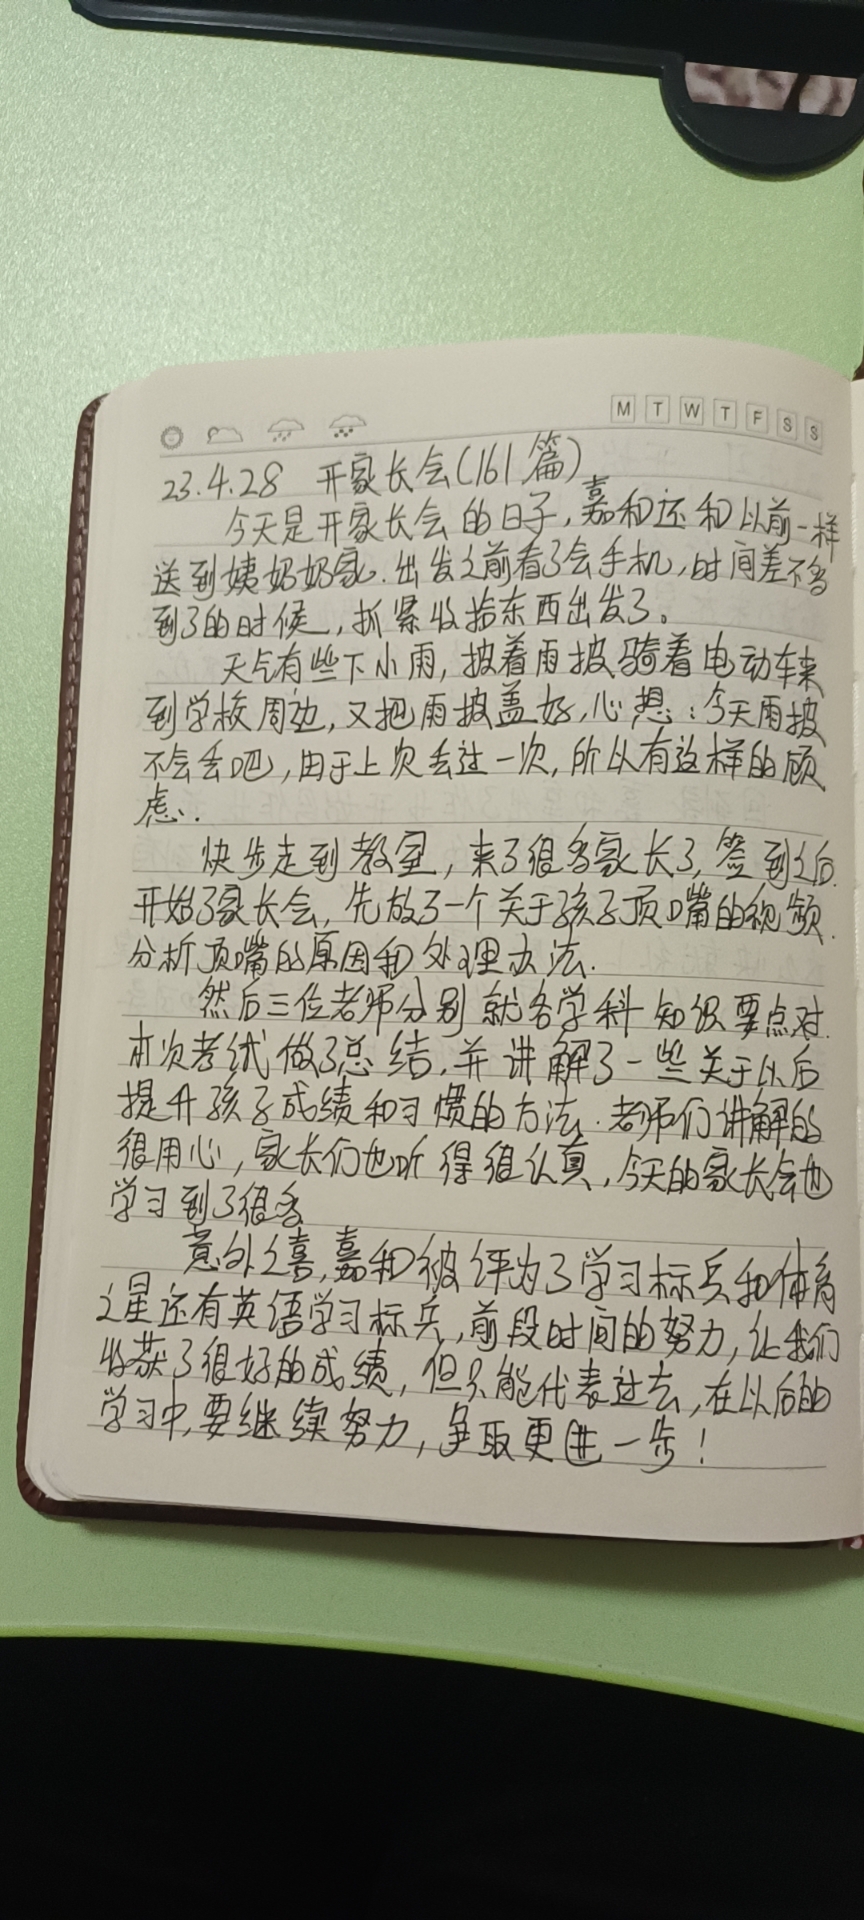 M T W T F S S
23.4.28 开家长会(161篇)
今天是开家长会的日子,嘉和还和以前一样
送到姨奶奶家.出发之前看了会手机,时间差不多
到了的时候,抓紧收拾东西出发了。
天气有些下小雨,披着雨披骑着电动车来
到学校周边,又把雨披盖好,心想:今天雨披
不会丢吧,由于上次丢过一次,所以有这样的顾
虑.
快步走到教室,来了很多家长了,签到之后.
开始了家长会,先放了一个关于孩子顶嘴的视频.
分析顶嘴的原因和处理办法.
然后三位老师分别就各学科知识要点对.
本次考试做了总结,并讲解了一些关于以后
提升孩子成绩和习惯的方法.老师们讲解的
很用心,家长们也听得很认真,今天的家长会也
学习到了很多
意外之喜,嘉和被评为了学习标兵和体育
之星还有英语学习标兵,前段时间的努力,让我们
收获了很好的成绩,但只能代表过去,在以后的
学习中,要继续努力,争取更进一步!